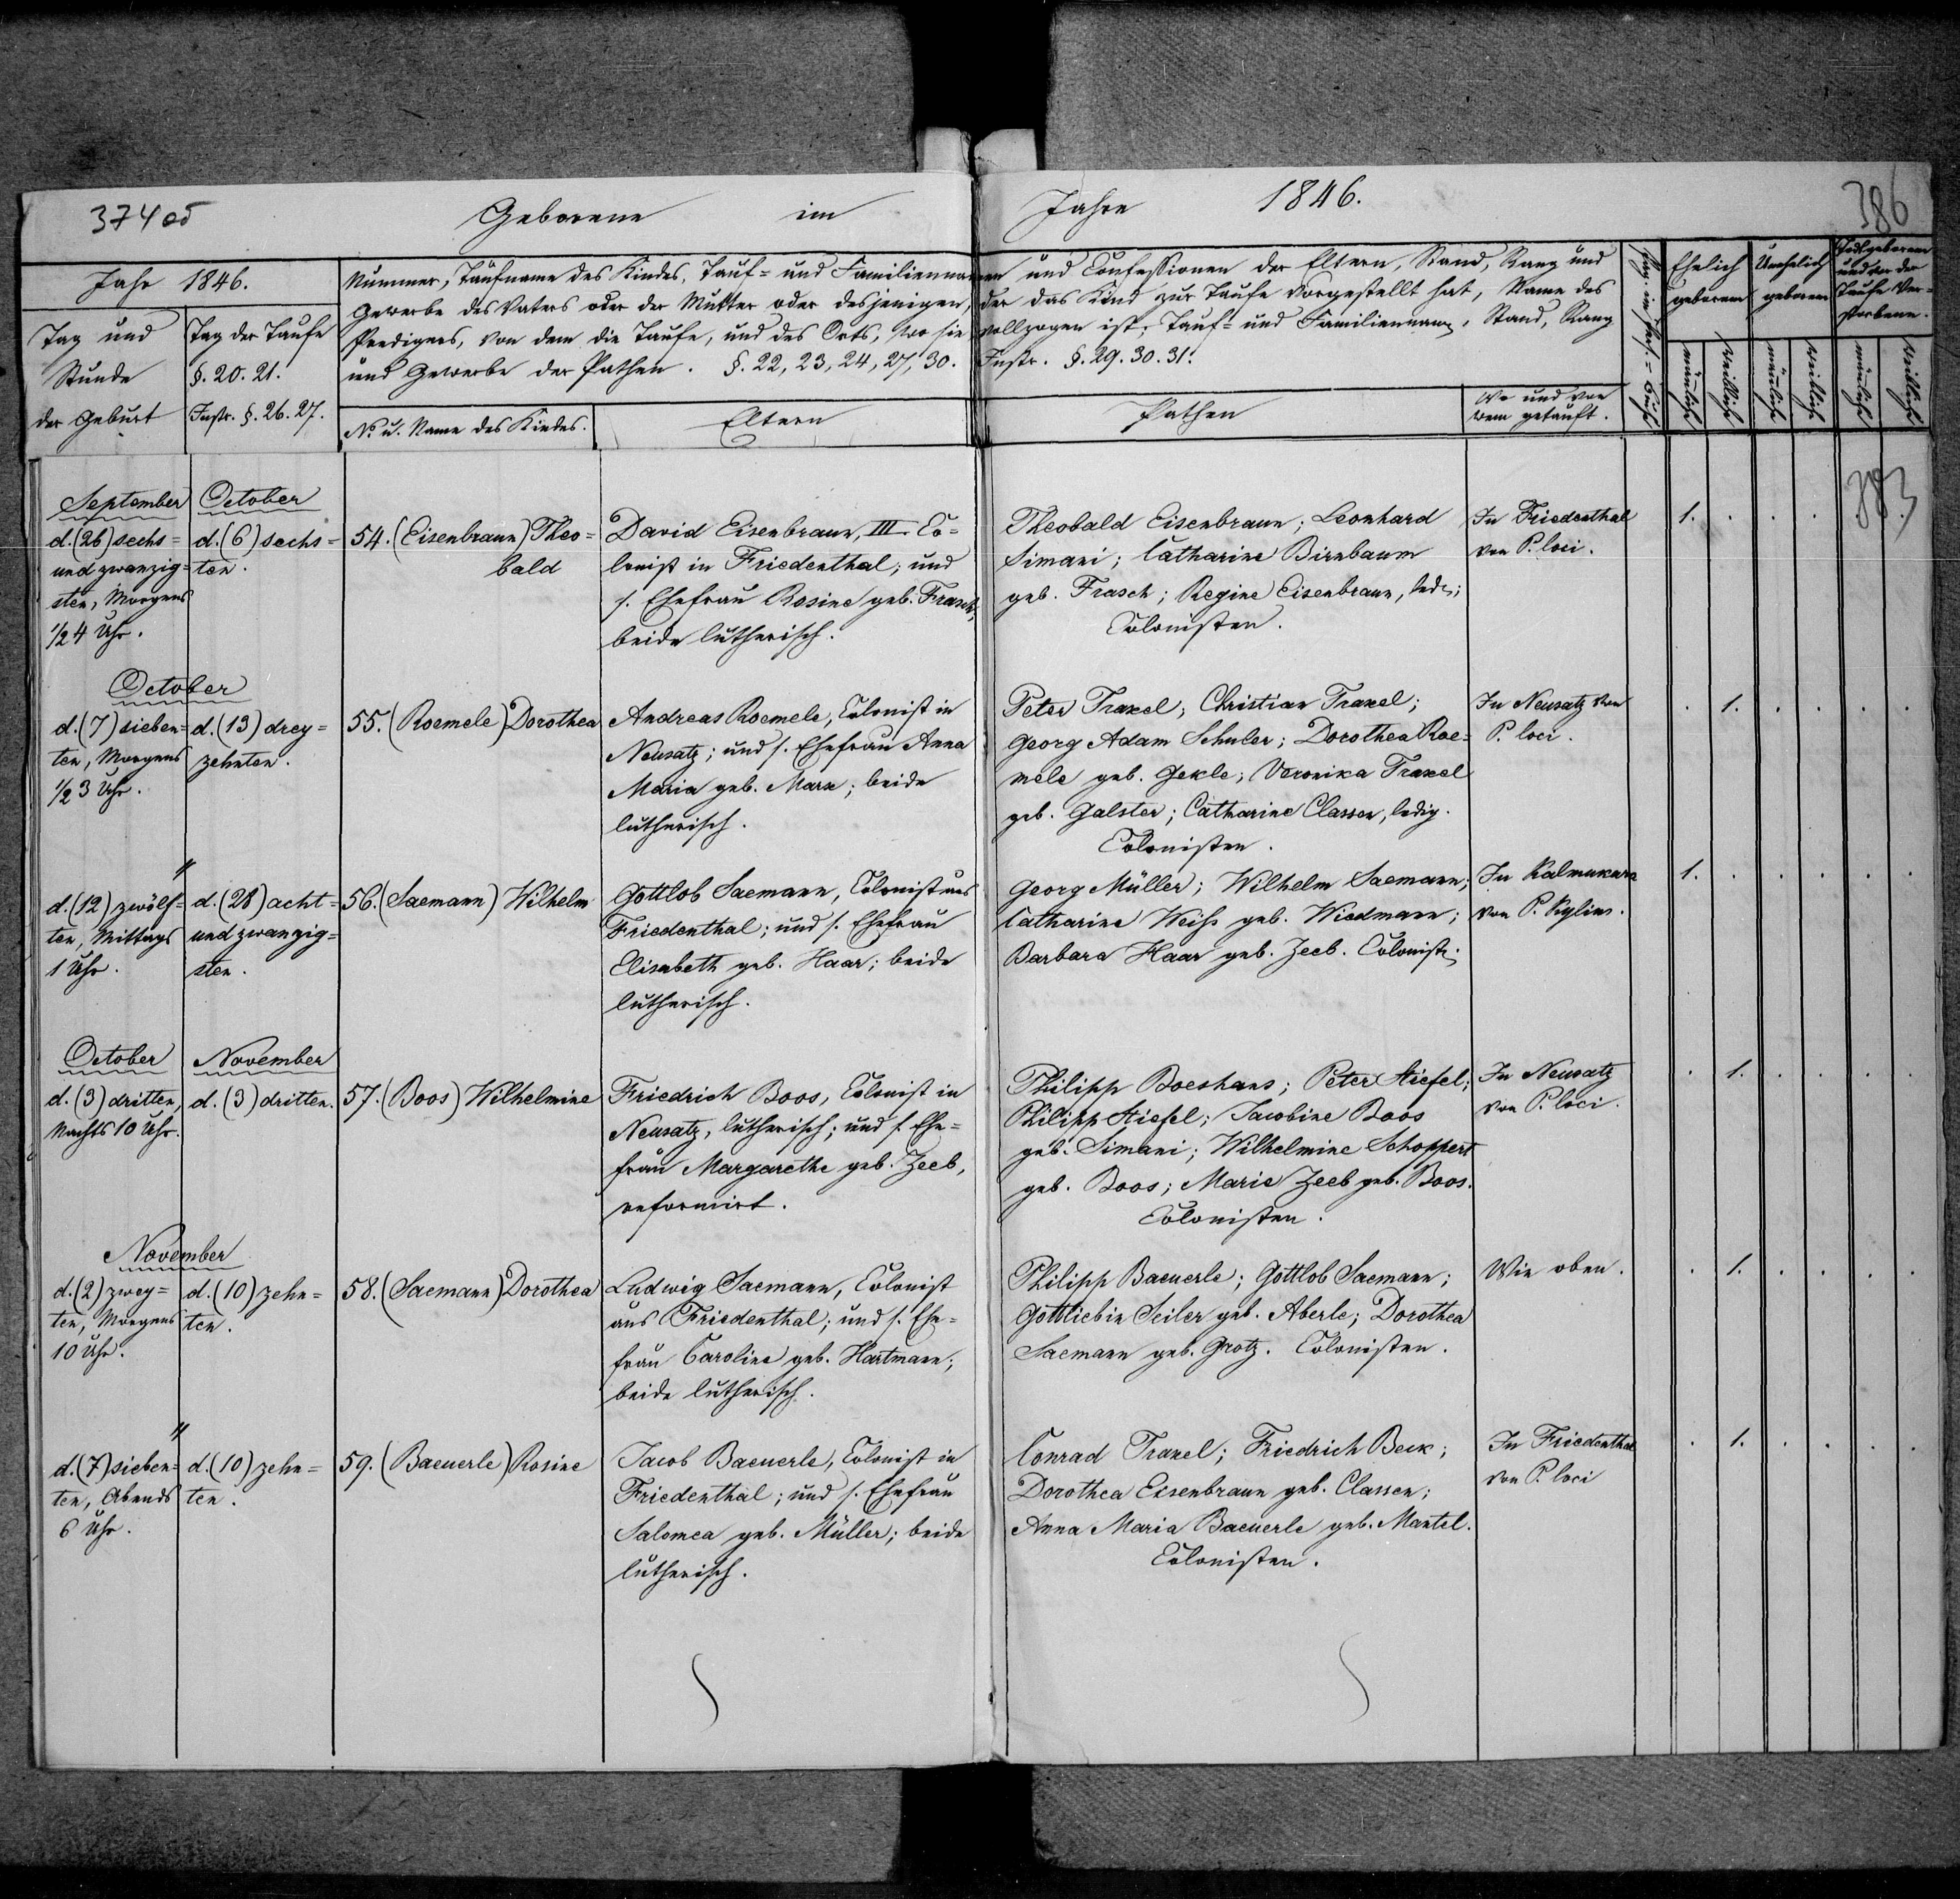 374 об
Geborene im Jahre 1846.
386
Jahr 1846.
Tag und
Stunde
der Geburt
Tag der Taufe
§. 20. 21.
Instr. §. 26. 27.
Nummer, Taufname des Kindes, Tauf= und Familiennamen und Confessionen der Eltern, Stand, Rang und
Gewerbe des Vaters oder der Mutter oder desjenigen, der das Kind zur Taufe vorgestellt hat, Name des
Predigers, von dem die Taufe, und des Orts, wo sie vollzogen ist, Tauf= und Familienname, Stand, Rang
und Gewerbe der Pathen. §. 22, 23, 24, 27, 30. Instr. §. 29. 30. 31.
No. u. Name des Kindes.
Eltern
Pathen
Wo und von
wem getauft.
Ehelich
geboren
Unehelich
geboren
Todtgeborene
und vor der
Taufe Ver=
storbene.
männlich
weiblich
männlich
weiblich
männlich
weiblich
383
September
d. (26) sechs=
und zwanzig=
sten, Morgens
1/2 4 Uhr.
October
d. (6) sechs=
ten.
54. (Eisenbraun) Theo=
bald
David Eisenbraun, III Co=
lonist in Friedenthal; und
s. Ehefrau Rosine geb. Frasch,
beide lutherisch.
Theobald Eisenbraun; Leonhard
Simani; Catharine Birnbaum
geb. Frasch; Regine Eisenbraun, led.;
Colonisten.
In Friedenthal
von P. loci.
1.
October
d. (7) sieben=
ten, Morgens
1/2 3 Uhr.
d. (13) drey=
zehnten.
55. (Roemele) Dorothea
Andreas Roemele, Colonist in
Neusatz; und s. Ehefrau Anna
Maria geb. Marx; beide
lutherisch.
Peter Traxel; Christian Traxel;
Georg Adam Schuler; Dorothea Roe=
mele geb. Jekle; Veronika Traxel
geb. Galster; Catharine Classen, ledig.
Colonisten.
In Neusatz von
P. loci.
1.
"
d. (12) zwölf=
ten, Mittags
1 Uhr.
d. (28) acht=
und zwanzig=
sten.
56. (Saemann) Wilhelm
Gottlob Saemann, Colonist aus
Friedenthal; und s. Ehefrau
Elisabeth geb. Haar; beide
lutherisch.
Georg Müller; Wilhelm Saemann;
Catharine Weiß geb. Wiedmann;
Barbara Haar geb. Zeeb. Colonist.
In Kalmukara
von P. Kylius.
1.
October
d. (3) dritten,
Nachts 10 Uhr.
November
d. (3) dritten.
57. (Boos) Wilhelmine
Friedrich Boos, Colonist in
Neusatz, lutherisch; und s. Ehe=
frau Margarethe geb. Zeeb,
reformirt.
Philipp Boeshans; Peter Stiefel;
Philipp Stiefel; Jacobine Boos
geb. Simani; Wilhelmine Schoppert
geb. Boos; Marie Zeeb geb. Boos.
Colonisten.
In Neusatz
von P. loci.
1.
November
d. (2) zwey=
ten, Morgens
10 Uhr.
d. (10) zehn=
ten.
58. (Saemann) Dorothea
Ludwig Saemann, Colonist
aus Friedenthal; und s. Ehe=
frau Caroline geb. Hartmann;
beide lutherisch.
Philipp Baeuerle; Gottlob Saemann;
Gottliebin Seiler geb. Aberle; Dorothea
Saemann geb. Grotz. Colonisten.
Wie oben.
1.
"
d. (7) sieben=
ten, Abends
6 Uhr.
d. (10) zehn=
ten.
59. (Baeuerle) Rosine
Jacob Baeuerle, Colonist in
Friedenthal; und s. Ehefrau
Salomea geb. Müller; beide
lutherisch.
Conrad Traxel; Friedrich Beck;
Dorothea Eisenbraun geb. Classen;
Anna Maria Baeuerle geb. Mantel.
Colonisten.
In Friedenthal
von P. loci
1.